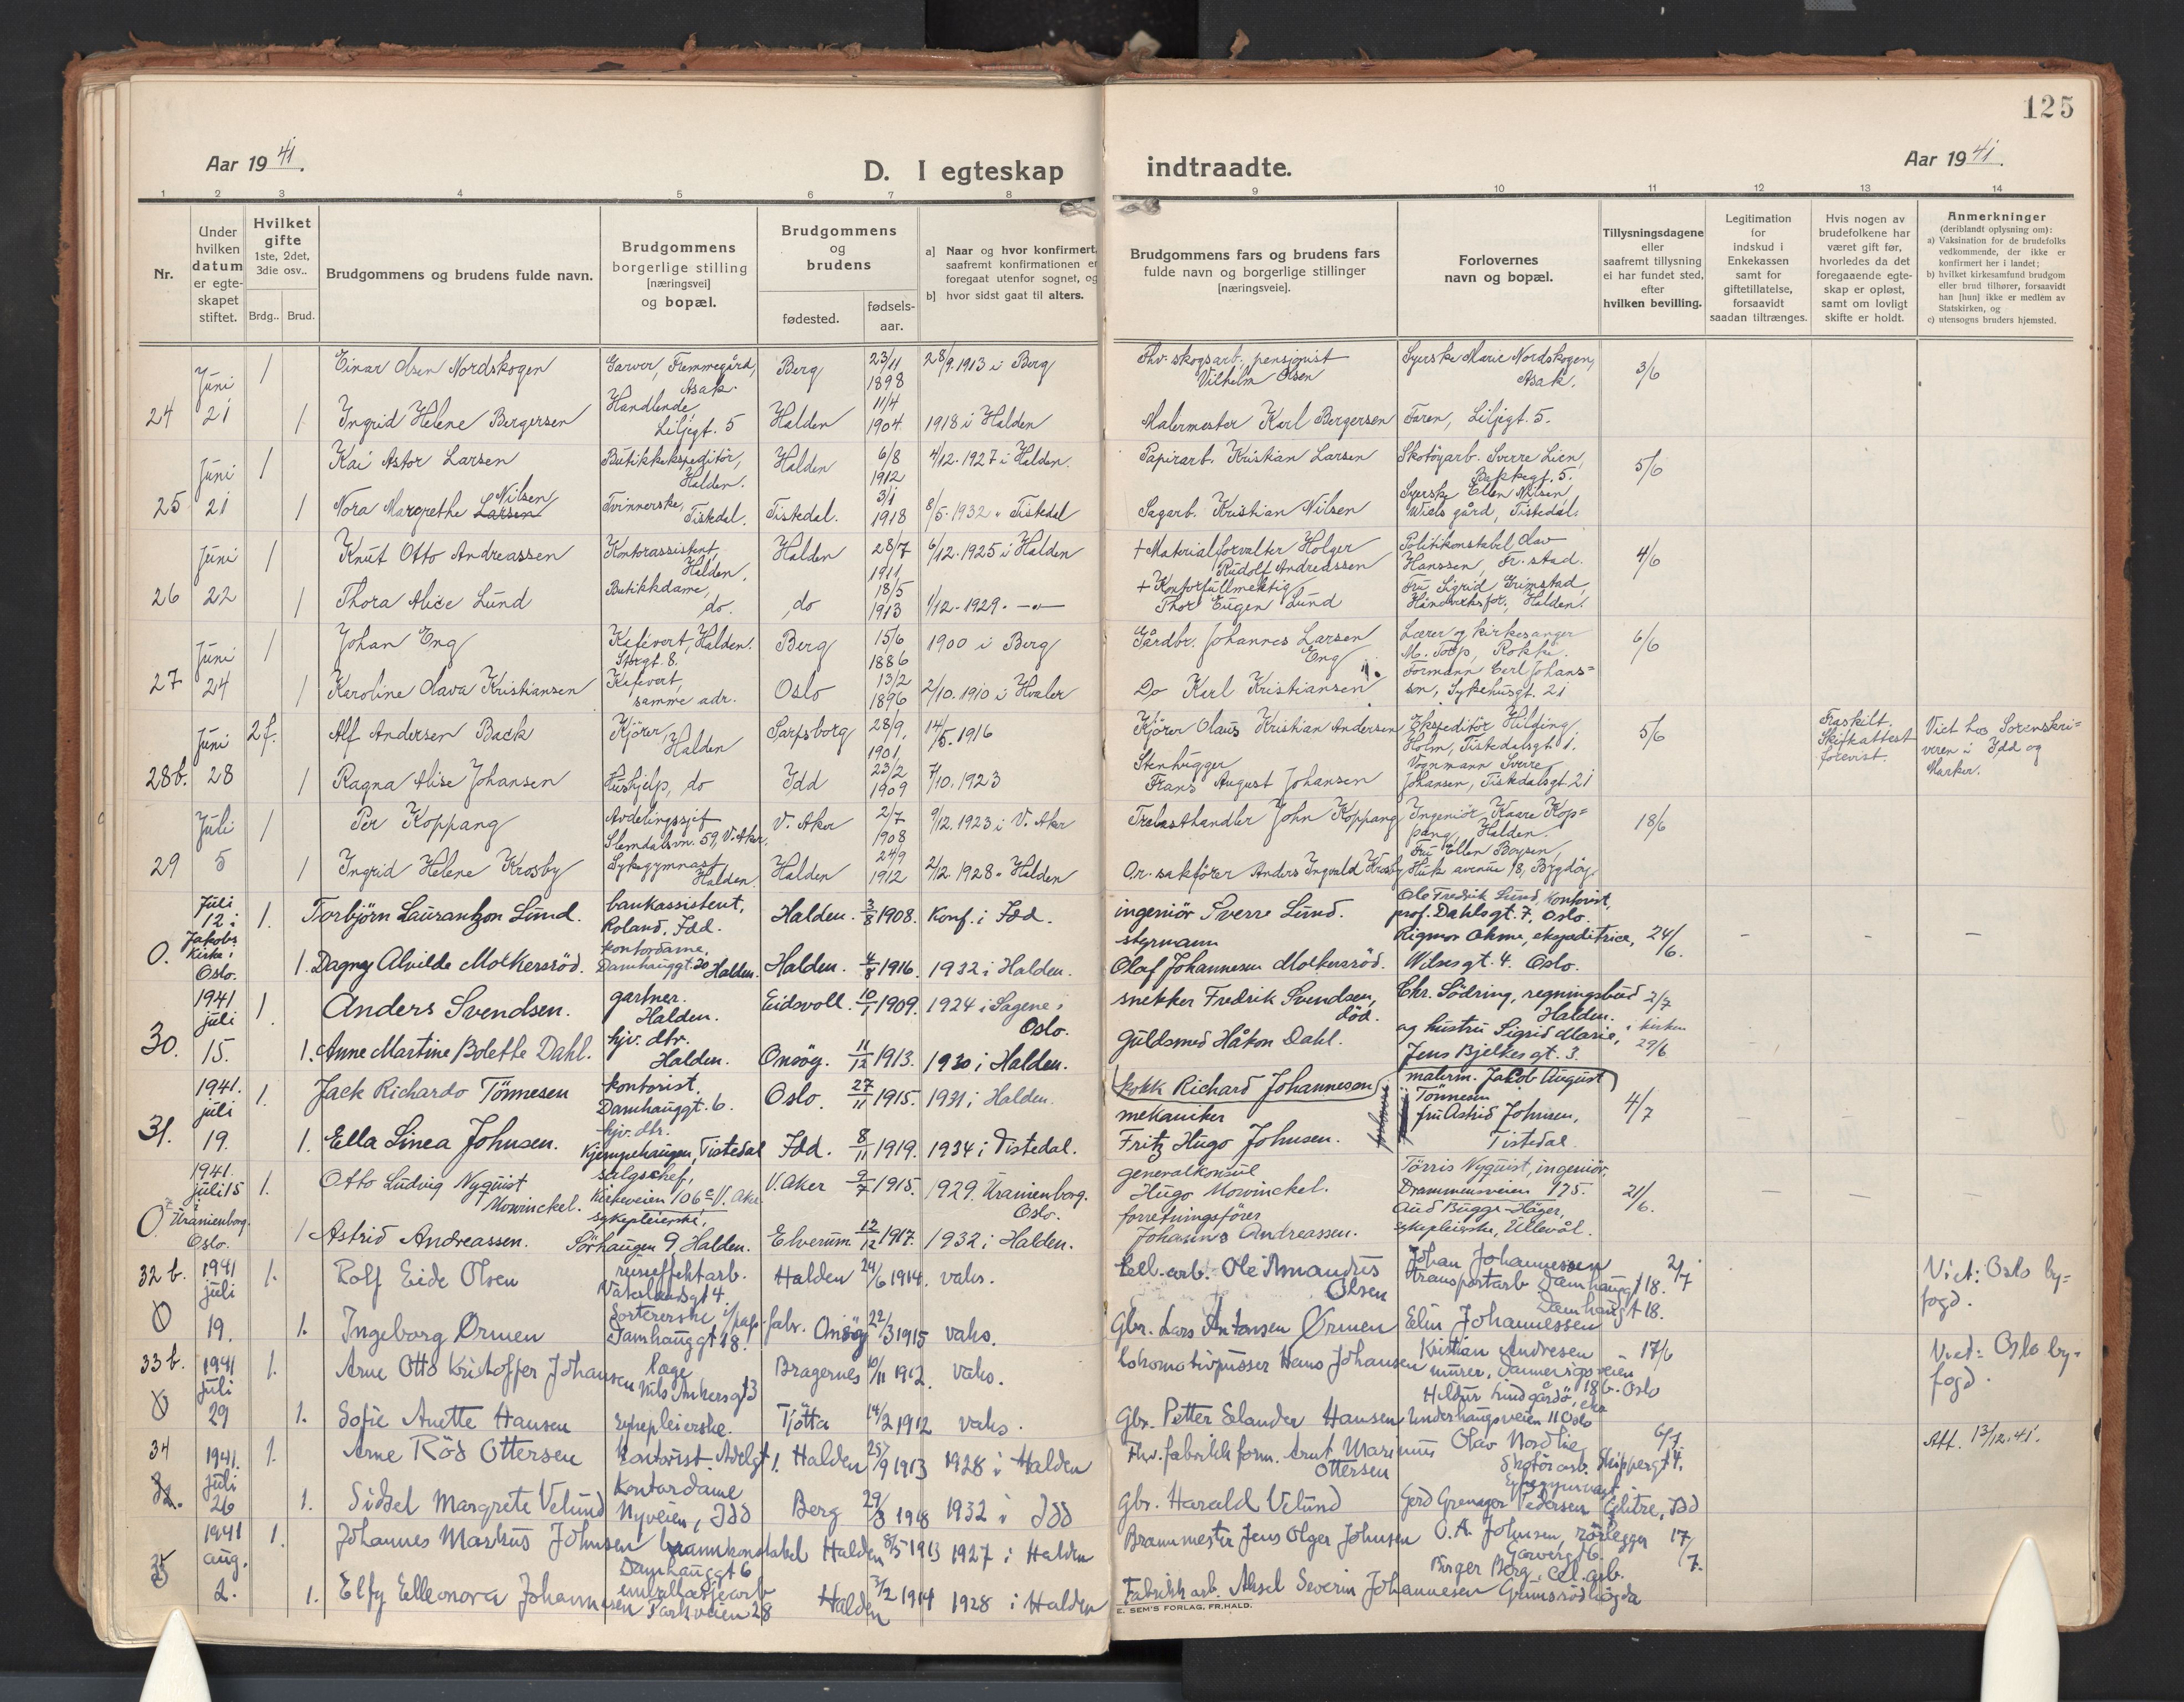 125
Aar 1941.
D. I egteskap indtraadte.
Aar 1941.
1 2 3 4 5 6 7 8 9 10 11 12 13 14
Nr.
Under hvilken datum er egteskapet stiftet.
Hvilket gifte 1ste, 2det, 3die osv..
Brdg.. Brud.
Brudgommens og brudens fulde navn.
Brudgommens borgerlige stilling [næringsvei] og bopæl.
Brudgommens og brudens
fødested.
fødsels-aar.
a] Naar og hvor konfirmert, saafremt konfirmationen er foregaat utenfor sognet, og
b] hvor sidst gaat til alters.
Brudgommens fars og brudens fars fulde navn og borgerlige stillinger [næringsveie].
Forlovernes navn og bopæl.
Tillysningsdagene eller saafremt tillysning ei har fundet sted, efter hvilken bevilling.
Legitimation for indskud i Enkekassen samt for giftetillatelse, forsaavidt saadan tiltrænges.
Hvis nogen av brudefolkene har været gift før, hvorledes da det foregaaende egteskap er opløst, samt om lovligt skifte er holdt.
Anmerkninger (deriblandt oplysning om):
a) Vaksination for de brudefolks vedkommende, der ikke er konfirmert her i landet;
b) hvilket kirkesamfund brudgom eller brud tilhører, forsaavidt han [hun] ikke er medlem av Statskirken, og
c) utensogns bruders hjemsted.
Juni 1 Einar Olsen Nordskogen Garver, Femmegård, Asak. Berg 23/11 1898 28/9. 1913 i Berg Fhv. skogsarb., pensjonist Vilhelm Olsen Syerske Marie Nordskogen, Asak. 3/6
24 21 1 Ingrid Helene Bergersen Handlende, Liljegt. 5 Halden 11/4 1904 1918 i Halden Malermester Karl Bergersen Faren, Liljegt. 5.
Juni 1 Kai Astor Larsen Butikkekspeditör, Halden. Halden 6/8 1912 4/12. 1927 i Halden. Papirarb. Kristian Larsen Skotöyarb. Sverre Lien, Bakkegt. 5. 5/6
25 21 1 Nora Margrethe Larsen Nilsen Tvinnerske, Tistedal. Tistedal. 3/1 1918 8/5. 1932 " Tistedal Sagarb. Kristian Nilsen Syerske Ellen Nilsen, Wiels gård, Tistedal.
Juni 1 Knut Otto Andreassen Kontorassistent, Halden. Halden 28/7 1911 6/12. 1925 i Halden + Materialforvalter Holger Rudolf Andreassen Politikonstabel Olav Hanssen, Fr.stad. 4/6
26 22 1 Thora Alice Lund Butikkdame, do. do 18/5 1913 1/12. 1929. —"— + Kontorfullmektig Thor Eugen Lund Fru Sigrid Grimstad, Håndverksfor., Halden.
Juni 1 Johan Eng Kafévert, Halden. Storgt. 8. Berg 15/6 1886 1900 i Berg Gårdbr. Johannes Larsen Eng Lærer og kirkesanger M. Torp, Rokke. 6/6
27 24 1 Karoline Olava Kristiansen Kafévert, samme adr. Oslo 13/2 1896 2/10. 1910 i Hvaler Do Karl Kristiansen Formann Carl Johansson, Sykehusgt. 21
Juni 2 f. Alf Andersen Back Kjörer, Halden Sarpsborg 28/9, 1901, 14/5. 1916 Kjörer Olaus Kristian Andersen Ekspeditör Hilding Holm, Tistedalsgt. 1. 5/6 Fraskilt. Skifteattest forevist. Viet hos Sorenskriveren i Idd og Marker.
28b. 28 1 Ragna Alise Johansen Hushjelp, do Idd 23/2 1909 7/10. 1923 Stenhugger Frans August Johansen Vognmann Sverre Johansen, Tistedalsgt. 21
Juli 1 Per Koppang Avdelingssjef Slemdalsvn. 59, V. Aker, V. Aker 2/7 1908 9/12. 1923 i V. Aker Trelasthandler John Koppang Ingeniör Kaare Koppang, Halden. 18/6
29 5 1 Ingrid Helene Krosby Sykegymnast, Halden. Halden 24/9 1912 2/12. 1928 " Halden O.r. sakförer Anders Ingvald Krosby Fru Ellen Boysen, Huk avenue 18, Bygdöy.
Juli 12 i 1. Torbjörn Laurantzon Lund. bankassistent, Roland, Idd. Halden. 3/8 1908. Konf. i Idd. ingeniör Sverre Lund. Ole Fredrik Lund, kontorist, prof. Dahlsgt. 7, Oslo.
O. Jakobs kirke, Oslo. 1. Dagny Alvilde Molkersröd. kontordame, Damhauggt. 20 Halden. Halden. 4/8 1916. 1932 i Halden. styrmann Olaf Johannesen Molkersröd. Rigmor Ohme, ekspeditrice, Wilses gt. 4. Oslo. 24/6.
1941 juli 1. Anders Svendsen. gartner. Halden. Eidsvoll. 10/1 1909. 1924 i Sagene, Oslo. snekker Fredrik Svendsen, död. Chr. Södring, regningsbud Halden. 2/7
30. 15. 1. Anne Martine Bolette Dahl. hjv. dtr. Halden. Onsöy. 11/12 1913. 1930 i Halden. Guldsmed Håkon Dahl. og hustru Sigrid Marie, Jens Bjelkes gt. 3. i kirken 29/6
1941. juli 1. Jack Richardo Tönnesen kontorist, Damhauggt. 6. Oslo. 27/11 1915. 1931 i Halden. kokk Richard Johannesen malerm. Jakob August Tönnesen 4/7
31. 19. 1. Ella Linea Johnsen. hjv. dtr. Kjempehaugen, Tistedal Idd. 8/11 1919. 1934 i Tistedal. mekaniker Fritz Hugo Johnsen. fru Astrid Johnsen, Tistedal.
1941. juli 15 1. Otto Ludvig Nyquist Mowinckel. salgschef, Kirkeveien 106 c V. Aker V. Aker 9/7 1915. 1929. Uranienborg. Oslo. generalkonsul Hugo Mowinckel. Törris Nyquist, ingeniör, Drammensveien 175. 21/6.
O. Uranienborg. Oslo. 1 Astrid Andreassen. sykepleierske, Sörhaugen 9, Halden. Elverum. 12/12 1917. 1932 i Halden. forretningsförer Johannes Andreassen. Aud Bugge-Höyer, sykepleierske, Ullevål.
32 b. 1941 juli 1. Rolf Eide Olsen reiseeffektarb. Vaterlandsgt 4. Halden 24/6 1914. vaks. Cell. arb. Ole Amandus Olsen Johan Johannessen transportarb. Damhauggt 18. 2/7 Viet: Oslo byfogd.
O 19. 1. Ingeborg Ørmen Sortererske i/pap.fabr. Damhauggt 18. Onsöy 22/3 1915 vaks. Gbr. Lars Antonsen Ørmen Elin Johannessen Damhaugt 18.
33 b. 1941 juli 1. Arne Otto Kristoffer Johansen læge Nils Ankersgt 3 Bragernes 10/11 1912. vaks. Lokomotivpusser Hans Johansen Kristian Andresen murer, Dannevigsveien 18b. Oslo 17/6 Vied: Oslo byfogd.
O 29 1. Sofie Anette Hansen Sykepleierske. Tjötta 14/2 1912 vaks. Gbr. Petter Elander Hansen Underhaugsveien 11 Oslo
34 1941. juli 1. Arne Röd Ottersen Kontorist Adelgt 1. Halden 25/9 1913 1928 i Halden Fhv. fabrikkform. Arnt Marinius Ottersen Olav Nordlie, Skotöiarb. Skippergt 4. 6/7 Att. 13/12.41.
26 1. Sidsel Margrete Velund Kontordame Nyveien, Idd Berg 29/3 1918 1932 i Idd Gbr. Harald Velund Gerd Grenager Pedersen Glitre, Idd
1941 aug. 1. Johannes Markus Johnsen brannkonstabel Damhauggt 6 Halden 8/5 1913 1927 i Halden Brannmester Jens Olger Johnsen O. A. Johnsen, rörlegger Garvergt 6. 17/7.
35 2. 1. Elfy Elleonora Johannesen emballasjearb Parkveien 28 Halden 3/2 1914 1928 i Halden Fabrikkarb. Aksel Severin Johannesen Birger Berg, cel. arb. Grimsrödhögda
E. SEM'S FORLAG, FR.HALD.